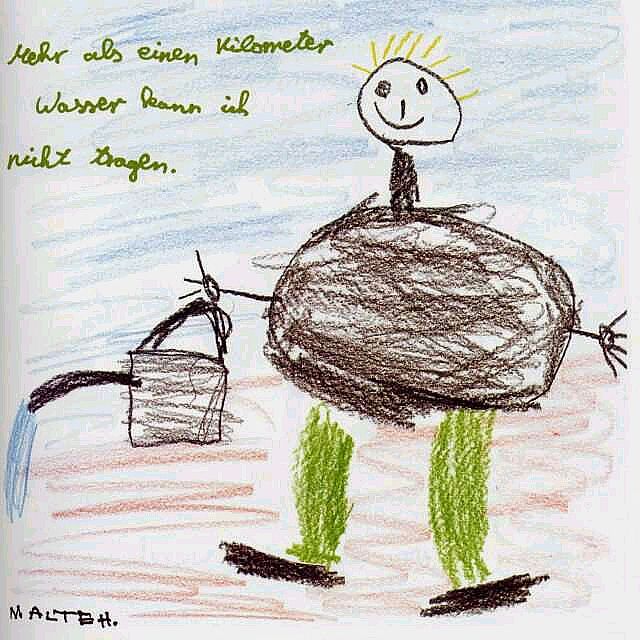 Mehr als einen Kilometer
Wasser kann ich
nicht tragen.
MALTEH.